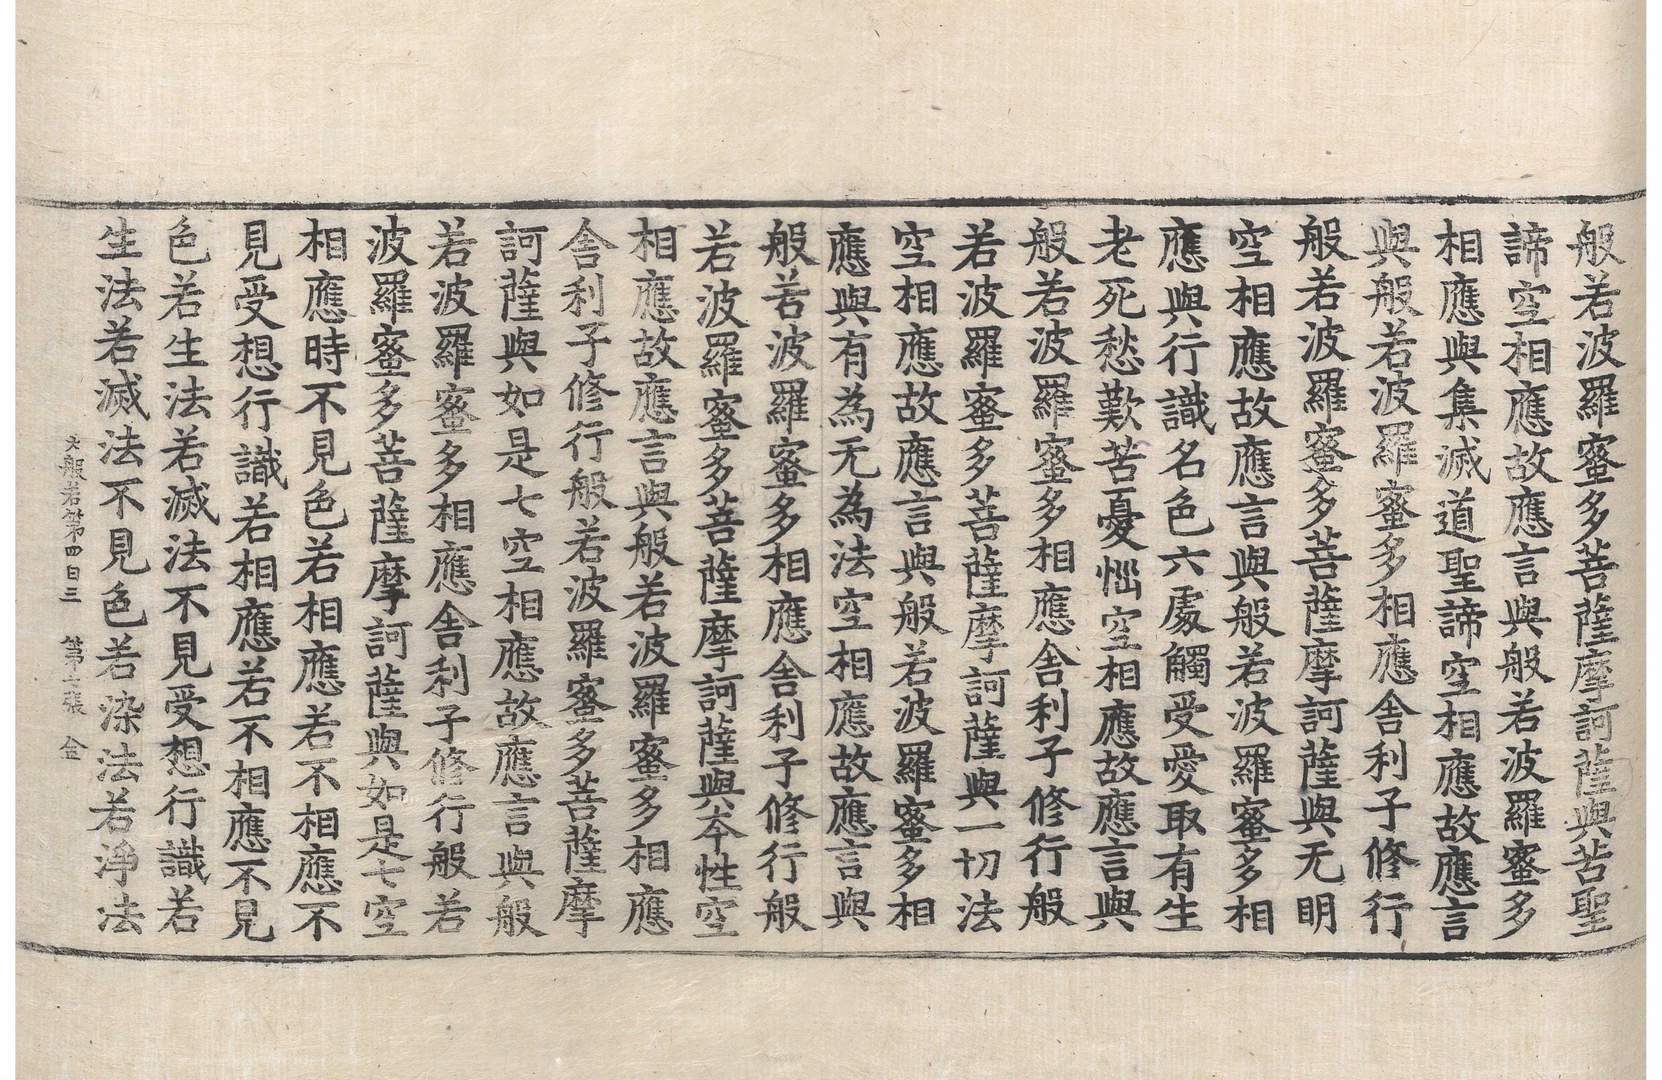 般若波羅蜜多菩薩摩訶薩與苦聖
諦空相應故應言與般若波羅蜜多
相應與集滅道聖諦空相應故應言
與般若波羅蜜多相應舍利子修行
般若波羅蜜多菩薩摩訶薩與无明
空相應故應言與般若波羅蜜多相
應與行識名色六處觸受愛取有生
老死愁歎苦憂惱空相應故應言與
般若波羅蜜多相應舍利子修行般
若波羅蜜多菩薩摩訶薩與一切法
空相應故應言與般若波羅蜜多相
應與有為无為法空相應故應言與
般若波羅蜜多相應舍利子修行般
若波羅蜜多菩薩摩訶薩與夲性空
相應故應言與般若波羅蜜多相應
舍利子修行般若波羅蜜多菩薩摩
訶薩與如是七空相應故應言與般
若波羅蜜多相應舍利子修行般若
波羅蜜多菩薩摩訶薩與如是七空
相應時不見色若相應若不相應不
見受想行識若相應若不相應不見
色若生法若滅法不見受想行識若
生法若滅法不見色若染法若淨法
大般若第四百三 第七張 金